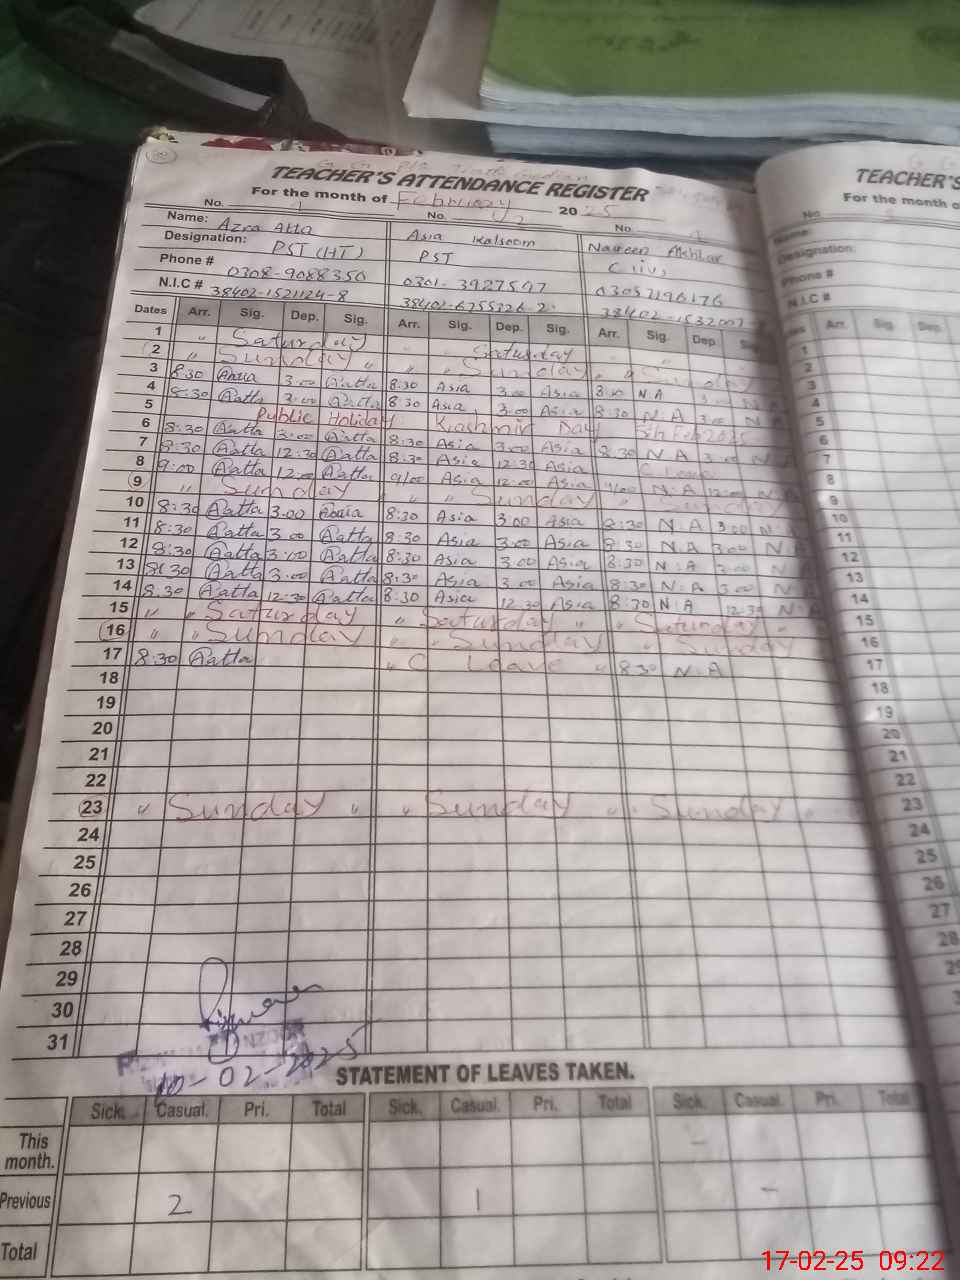 TEACHER'S ATTENDANCE REGISTER
For the month of February 2025
No. 1 No. 2 No.
Name: Azra Atta Asia Kalsoom Naureen Akhtar
Designation: PST (HT) PST C iv
Phone # 0308-9088350 0301-3927507 03057196176
N.I.C # 38402-1521124-8 38402-6755326-2
Dates Arr. Sig. Dep. Sig. Arr. Sig. Dep. Sig. Arr. Sig. Dep Sig
1 " Saturday Saturday
2 " Sunday " " Sunday " Sunday
3 8:30 Aatta 3:00 Aatta 8:30 Asia 3:00 Asia 8:30 N.A 3:00
4 8:30 Aatta 3:00 Aatta 8:30 Asia 3:00 Asia 8:30 N.A 3:00 N
5 Public Holiday Kashmir Day 5th Feb 2025
6 8:30 Aatta 3:00 Aatta 8:30 Asia 3:00 Asia 8:30 N A 3:00 N
7 8:30 Aatta 12:30 Aatta 8:30 Asia 12:30 Asia C Leave
8 9:00 Aatta 12:00 Aatta 9:00 Asia 12:00 Asia 9:00 N.A 12:00 N
9 " Sunday " " Sunday Sunday
10 8:30 Aatta 3.00 Aatta 8:30 Asia 3:00 Asia 8:30 N A 3:00 N.
11 8:30 Aatta 3:00 Aatta 8:30 Asia 3:00 Asia 8:30 N.A 3:00 N.A
12 8:30 Aatta 3:00 Aatta 8:30 Asia 3:00 Asia 8:30 N.A 3:00 N
13 8:30 Aatta 3:00 Aatta 8:30 Asia 3:00 Asia 8:30 N.A 3:00 N
14 8:30 Aatta 12:30 Aatta 8:30 Asia 12:30 Asia 8:30 N.A 12:30 N.
15 " " Saturday " Saturday " " Saturday "
16 " " Sunday " " Sunday " Sunday
17 8:30 Aatta " C Leave " 8:30 N.A
18
19
20
21
22
23 " Sunday " " Sunday " " Sunday "
24
25
26
27
28
29
30
31
10-02-2025
STATEMENT OF LEAVES TAKEN.
Sick. Casual. Pri. Total Sick. Casual. Pri. Total Sick. Casual. Pri. Total
This month. -
Previous 2 1 -
Total
TEACHER'S
For the month o
No
Name:
Designation:
Phone #
N.I.C #
Arr. Sig. Dep
1
2
3
4
5
6
7
8
9
10
11
12
13
14
15
16
17
18
19
20
21
22
23
24
25
26
27
28
17-02-25 09:22